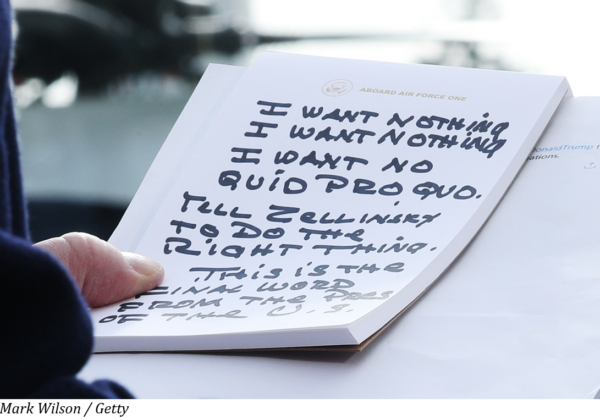 ABOARD AIR FORCE ONE
I WANT NOTHING
I WANT NOTHING
I WANT NO
QUID PRO QUO.
TELL ZELLINSKY
TO DO THE
RIGHT THING.
THIS IS THE
FINAL WORD
FROM THE PRES
OF THE U.S.
DonaldTrump
ations.
Mark Wilson / Getty